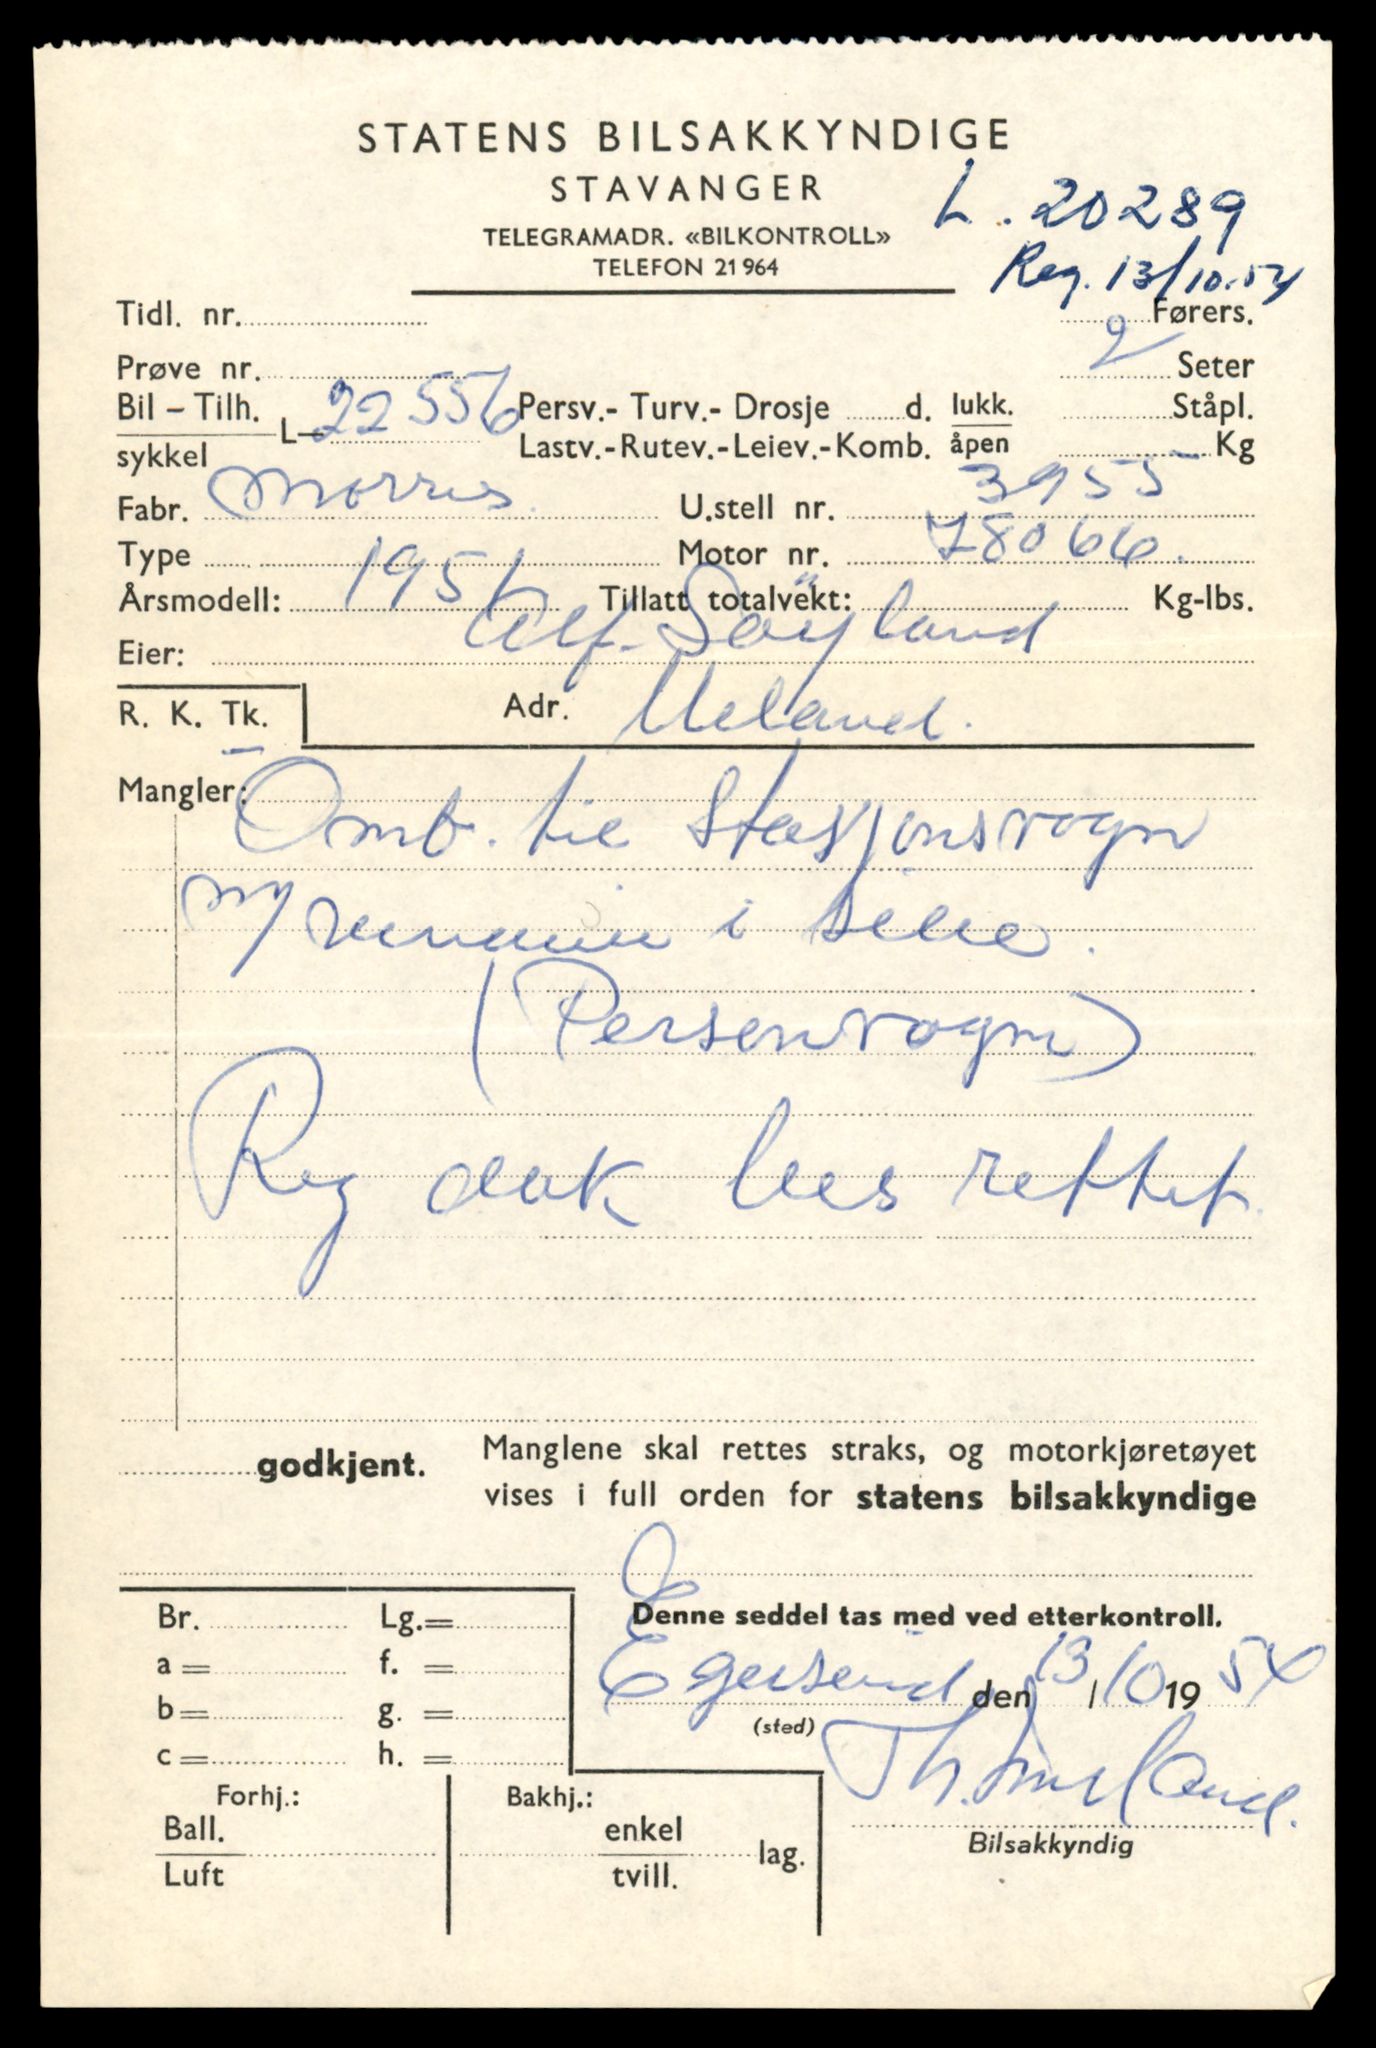 STATENS BILSAKKYNDIGE
STAVANGER
L. 20289
TELEGRAMADR. «BILKONTROLL»
Reg. 13/10-54
TELEFON 21964
Tidl. nr. Førers.
Prøve nr. 2 Seter
Bil – Tilh. L– 22556 Persv.- Turv.- Drosje d. lukk. Ståpl.
sykkel Lastv.-Rutev.-Leiev.-Komb. åpen Kg
Fabr. Morris. U.stell nr. 3955
Type Motor nr. 78066.
Årsmodell: 1951 Tillatt totalvekt: Kg-lbs.
Eier: Alf Söyland
R. K. Tk. Adr. Ueland.
Mangler: Omb. til Stasjonsvogn
i
(Personvogn)
Reg rettet.
godkjent. Manglene skal rettes straks, og motorkjøretøyet
vises i full orden for statens bilsakkyndige
Br. Lg.= Denne seddel tas med ved etterkontroll.
a = f. =
Egersund den 13/10 19 54
b = g. =
(sted)
c = h. =
Th.
Forhj.: Bakhj.:
Ball. enkel lag.
Luft tvill.
Bilsakkyndig